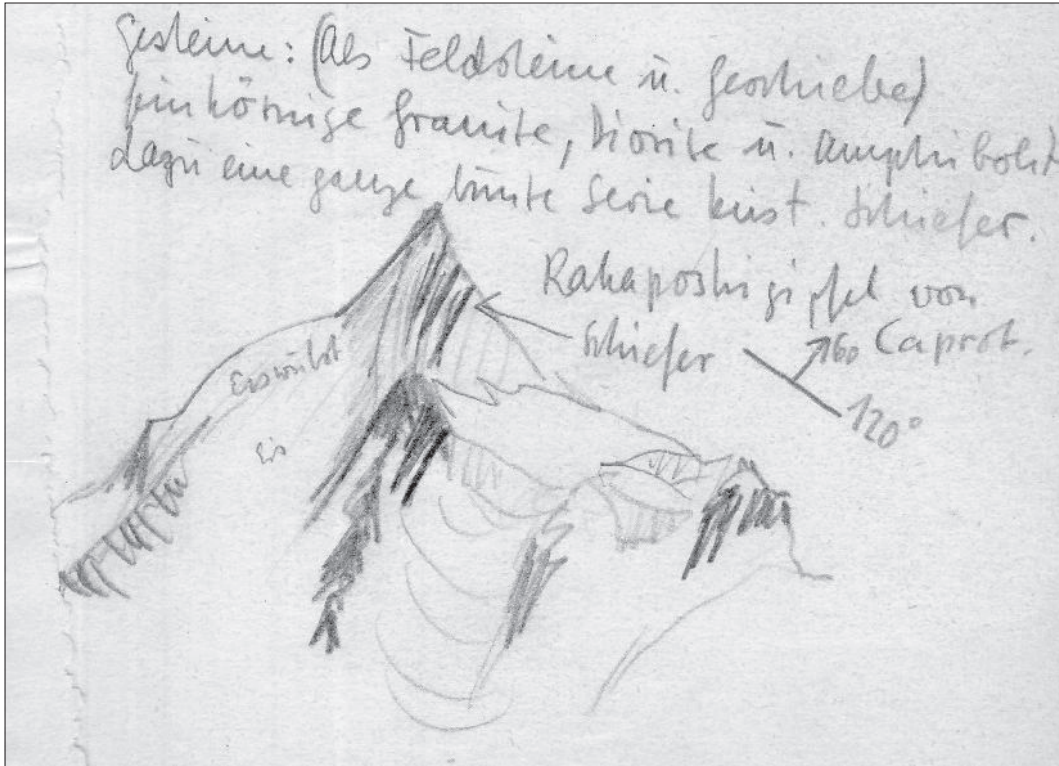 Gesteine: (Als Feldsteine u. Geschiebe)
feinkörnige Granite, Diorite u. Amphibolit
dazu eine ganze bunte Serie krist. Schiefer.
Rakaposhigipfel von
Schiefer
760 Caprot.
120°
Eis